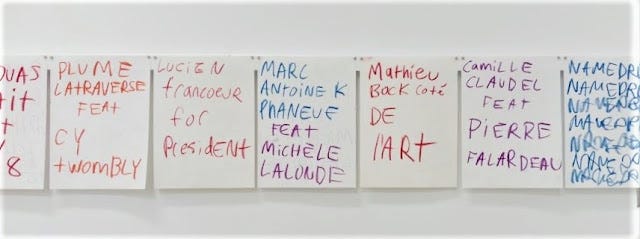 OUAS
ait
t
8
PLUME
LATRAVERSE
FEAT
CY
twOMBLY
LUCIEN
francoeur
for
President
MARC
ANTOINE K
PHANEUF
FEAT
MICHÈLE
LALONDE
Mathieu
BOCK Coté
DE
l'ART
Camille
CLAUDEL
FEAT
PIERRE
FALARDEAU
NAMEDR
NAMEDR